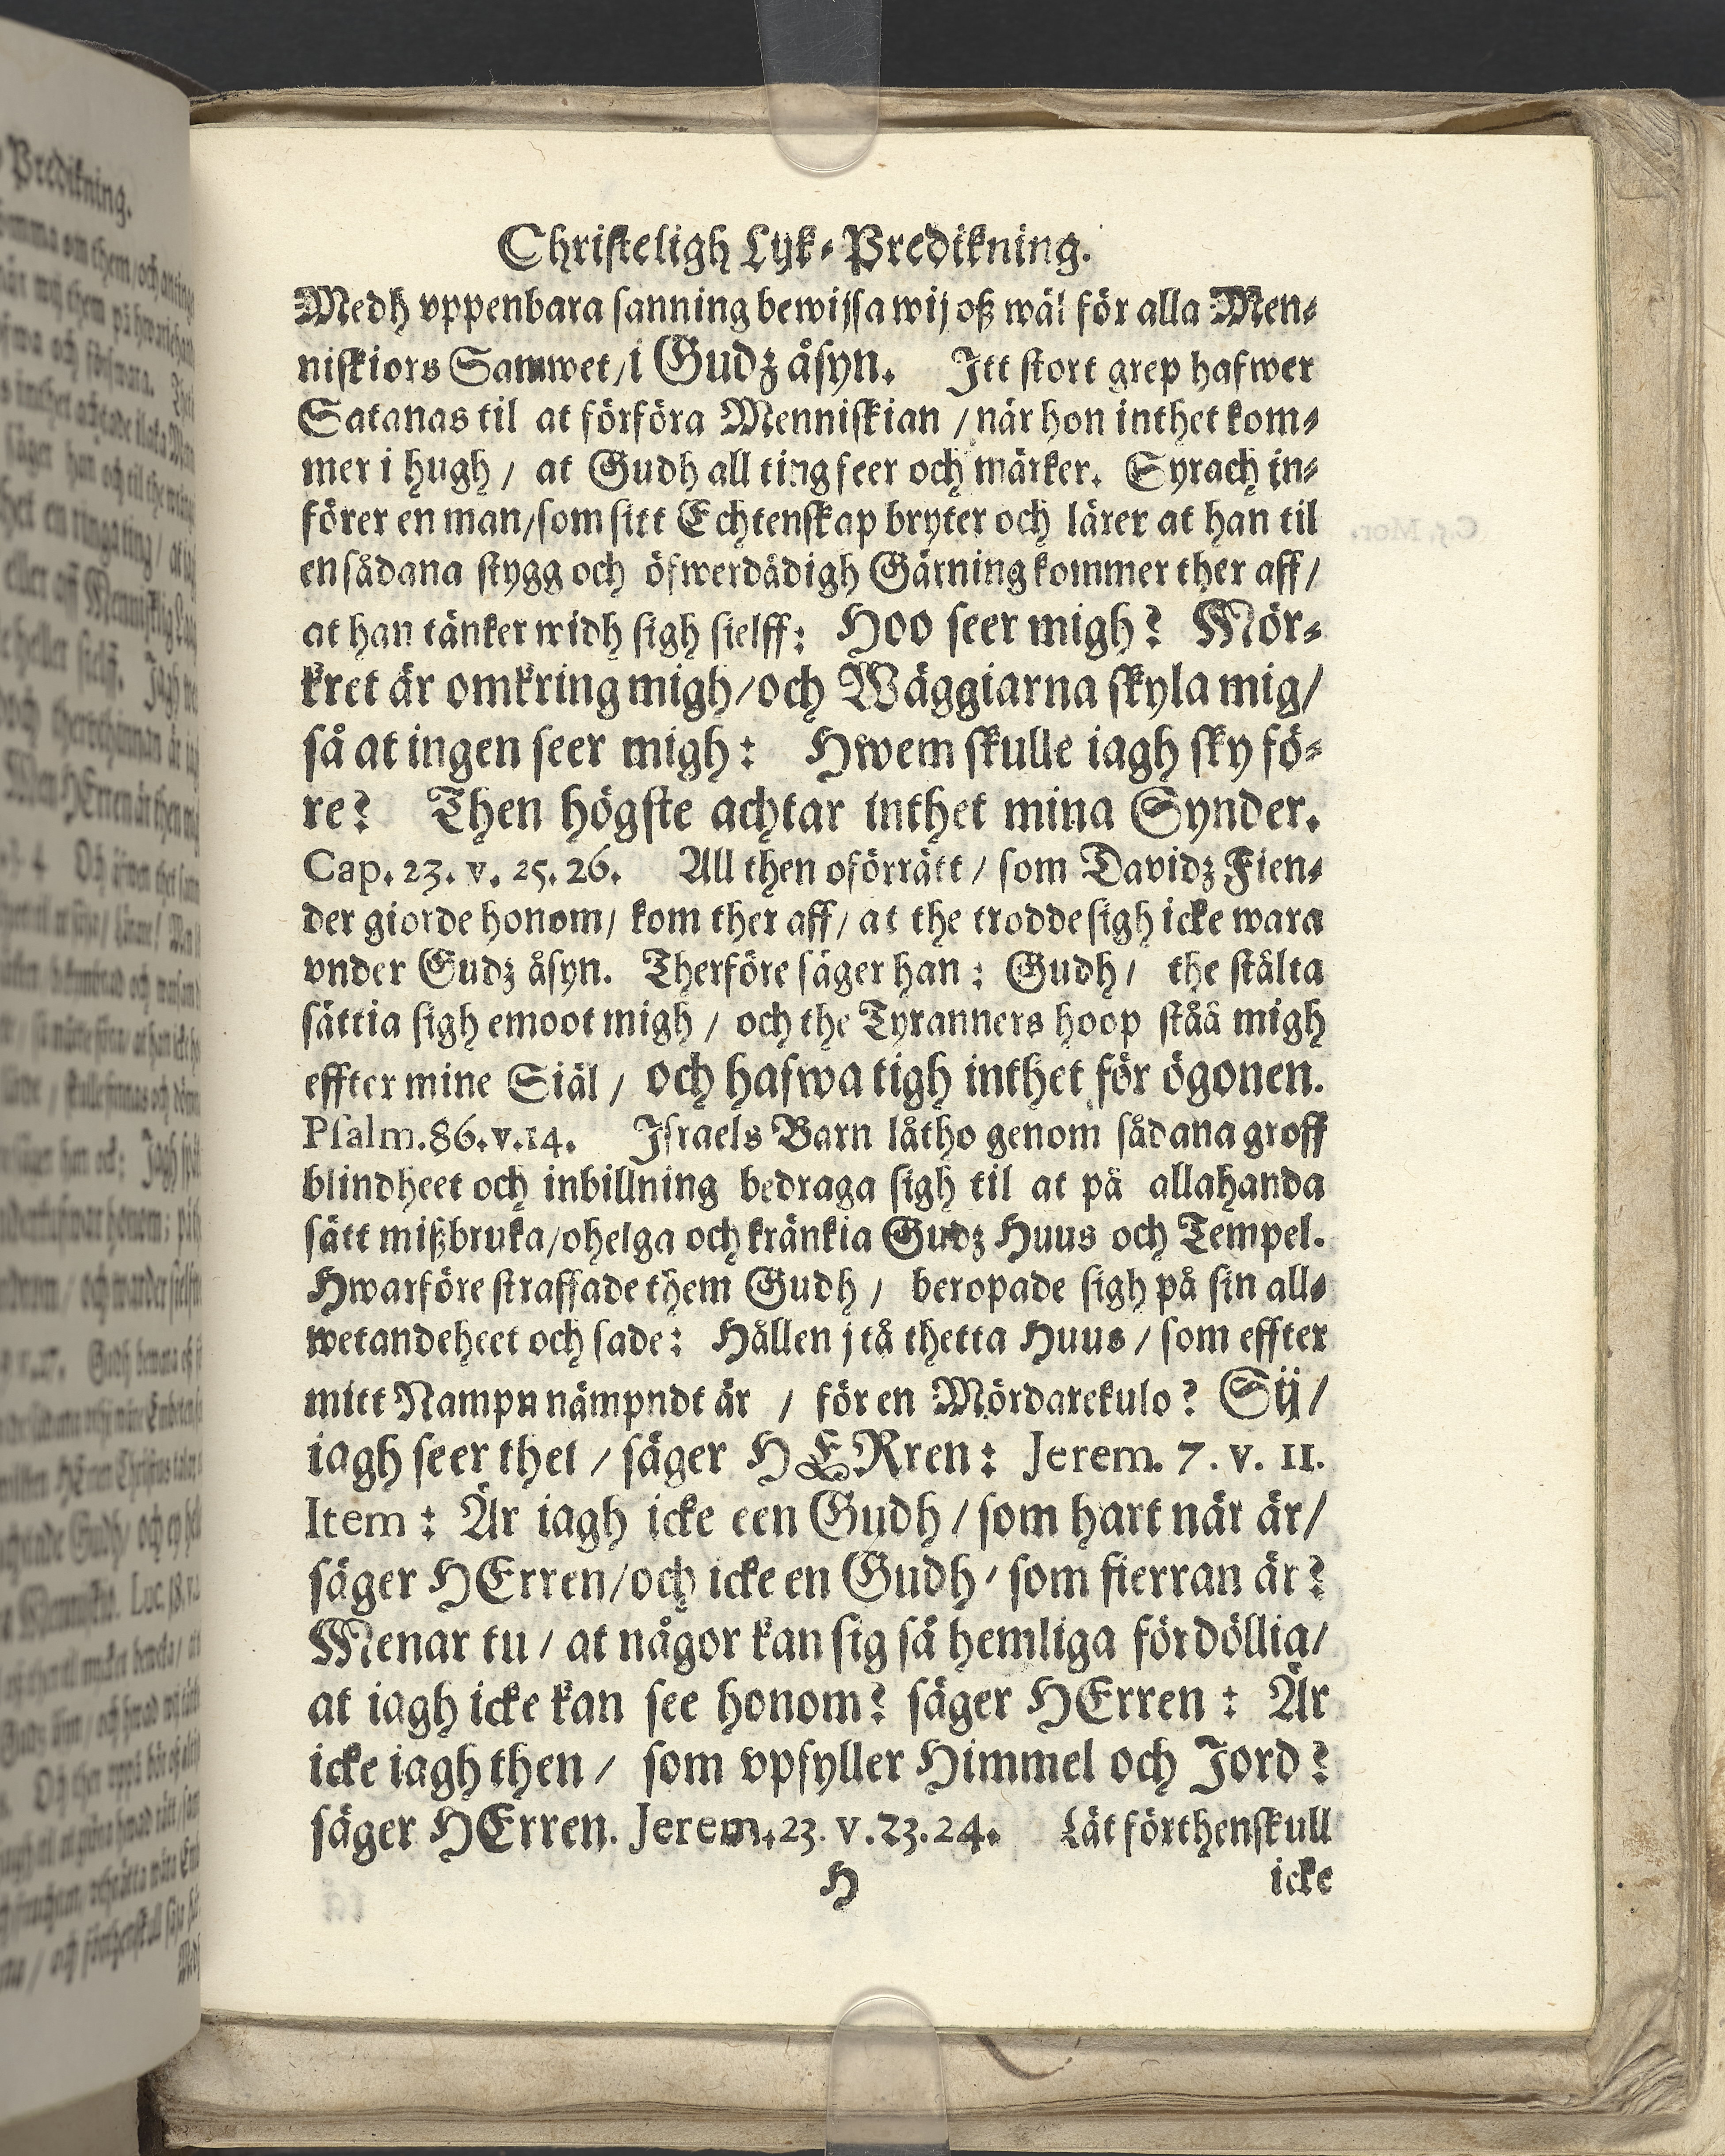 Christeligh Lyk-Predikning.
Medh vppenbara sanning bewijsa wij oß wäl för alla Men-
niskiors Samwet/i Gudz åsyn. Itt stort grep hafwer
Satanas til at förföra Menniskian / när hon inthet kom-
mer i hugh / at Gudh all ting seer och märker. Syrach in-
förer en man/som sitt Echtenskap bryter och lärer at han til
en sådana stygg och öfwerdådigh Gärning kommer ther aff/
at han tänker widh sigh sielff: Hoo seer migh? Mör-
kret är omkring migh/och Wäggiarna skyla mig/
så at ingen seer migh: Hwem skulle iagh sky fö-
re? Then högste achtar inthet mina Synder.
Cap. 23. v. 25. 26. All then oförrätt / som Davidz Fien-
der giorde honom/ kom ther aff/ at the trodde sigh icke wara
vnder Gudz åsyn. Therföre säger han: Gudh/ the stålta
sättia sigh emoot migh / och the Tyranners hoop ståå migh
effter mine Siäl / och hafwa tigh inthet för ögonen.
Psalm. 86. v. 14. Israels Barn låtho genom sådana groff
blindheet och inbillning bedraga sigh til at på allahanda
sätt mißbruka/ohelga och kränkia Gudz Huus och Tempel.
Hwarföre straffade them Gudh / beropade sigh på sin all-
wetandeheet och sade: Hållen j tå thetta Huus / som effter
mitt Nampn nämpndt är / för en Mördarekulo? Sij/
iagh seer thet / säger HERren: Jerem. 7. v. 11.
Item: Är iagh icke een Gudh / som hart när är/
säger HErren/och icke en Gudh / som fierran är?
Menar tu / at någor kan sig så hemliga fördöllia/
at iagh icke kan see honom? säger HErren: Är
icke iagh then / som vpfyller Himmel och Jord?
säger HErren. Jerem. 23. v. 23. 24. Låt förthenskull
H icke